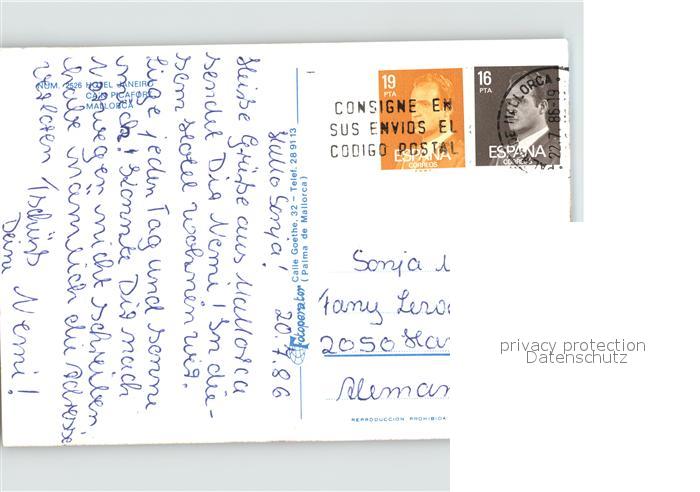 NUM. 2526 HOTEL JANEIRO
CA'N PICAFORT
MALLORCA
20.7.86
Hallo Sonja!
Heiße Grüße aus Mallorca
sendet Dir Nemi! In die-
sem Hotel wohnen wir.
Liege jeden Tag und sonne
mich! Konnte Dir nach
Norwegen nicht schreiben
habe nämlich die Adresse
verloren! Tschüß
Deine Nemi!
Fotoperator Calle Goethe, 32 - Telef. 28 91 13
(Palma de Mallorca)
19
PTA
ESPAÑA
CORREOS
16
PTA
ESPAÑA
CORREOS
CONSIGNE EN
SUS ENVIOS EL
CODIGO POSTAL
DE MALLORCA
22.7.86-19
Sonja
Fany
2050 Ha
Aleman
REPRODUCCION PROHIBID
privacy protection
Datenschutz